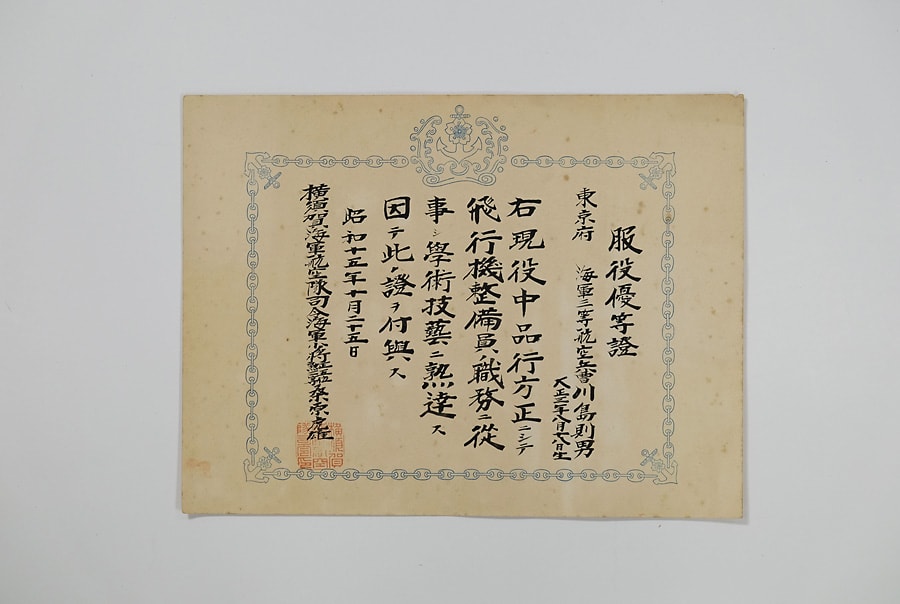 服役優等證
東京府 海軍三等航空兵曹 川島則男
大正二年八月十八日生
右現役中品行方正ニシテ
飛行機整備員ノ職務ニ從
事シ學術技藝ニ熟達ス
因テ此ノ證ヲ付與ス
昭和十五年十月二十五日
横須賀海軍航空隊司令海軍少將 桑原虎雄